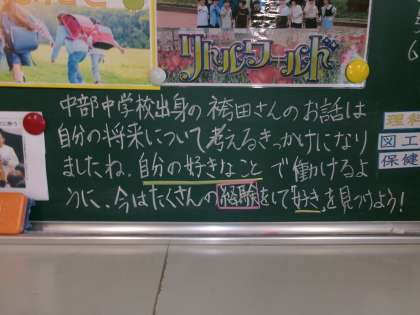 リトルワールド
中部中学校出身の袴田さんのお話は
自分の将来について考えるきっかけになり
ましたね。自分の好きなことで働けるよ
うに、今はたくさんの経験をして「好き」を見つけよう！
理科
図工
保健